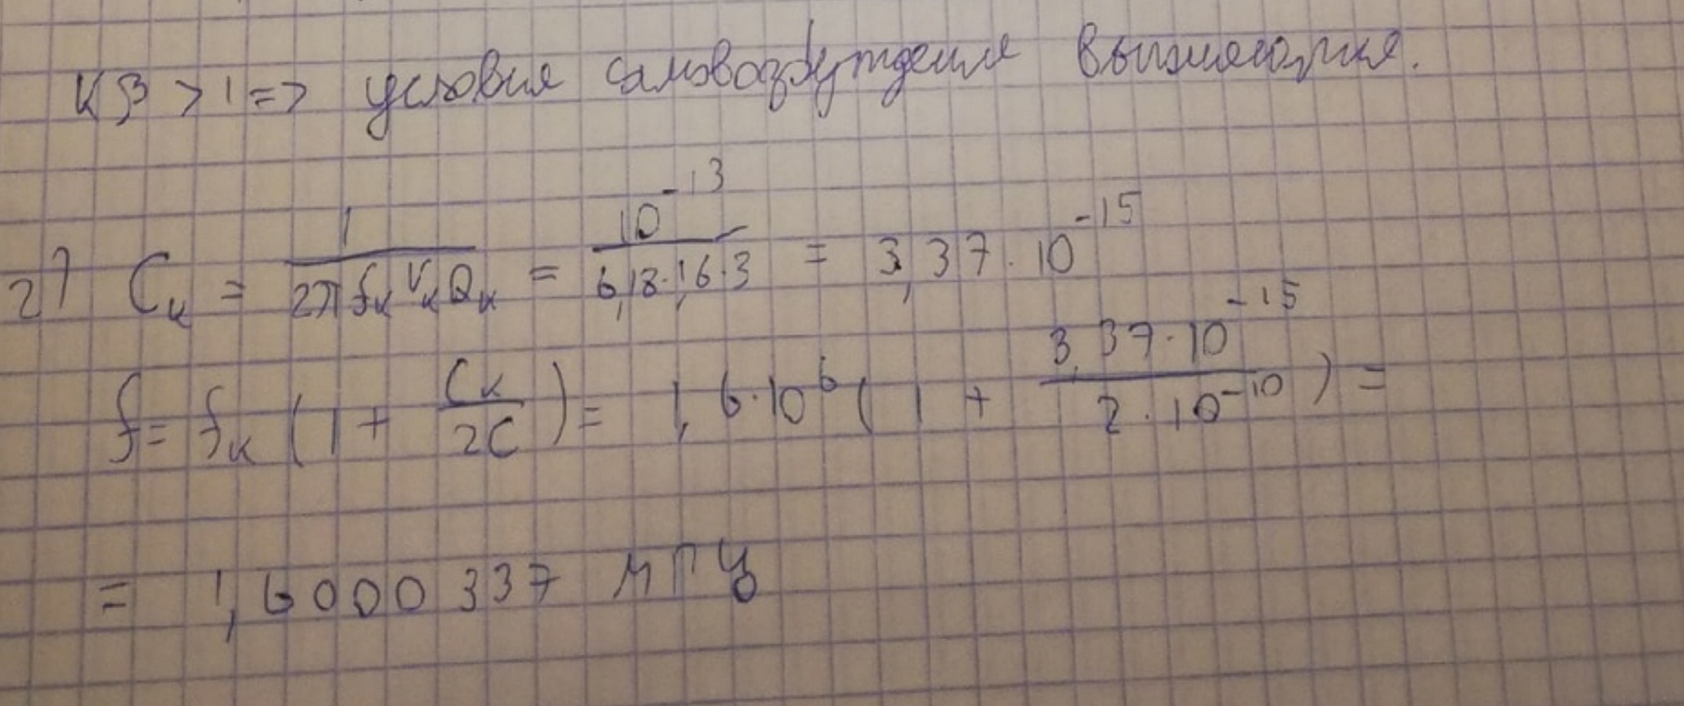 Kβ > 1 => условия самовозбуждения выполняются.
2) Cк = 1/(2π fк rк Qк) = 10^-13/(6,18·1,6·3) = 3,37·10^-15
f = fк (1 + Cк/2C) = 1,6·10^6 (1 + 3,37·10^-15/2·10^-10) =
= 1,6000337 МГц